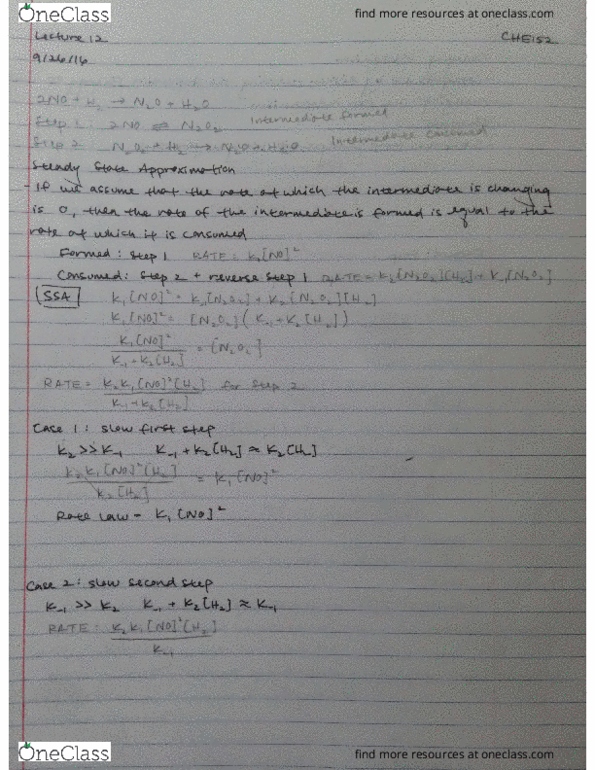 OneClass find more resources at oneclass.com
Lecture 12 CHE152
9/26/16
2NO + H₂ → N₂O + H₂O
Step 1: 2NO ⇌ N₂O₂ Intermediate formed
Step 2: N₂O₂ + H₂ → N₂O + H₂O Intermediate consumed
Steady State Approximation
- If we assume that the rate at which the intermediate is changing
is 0, then the rate of the intermediate is formed is equal to the
rate at which it is consumed
Formed: Step 1 RATE = K₁[NO]²
Consumed: Step 2 + reverse step 1 RATE = K₂[N₂O₂][H₂] + K₋₁[N₂O₂]
SSA K₁[NO]² = K₋₁[N₂O₂] + K₂[N₂O₂][H₂]
K₁[NO]² = [N₂O₂](K₋₁ + K₂[H₂])
K₁[NO]²
K₋₁ + K₂[H₂] = [N₂O₂]
RATE = K₂K₁[NO]²[H₂] for step 2
K₋₁ + K₂[H₂]
Case 1: slow first step
K₂ >> K₋₁ K₋₁ + K₂[H₂] ≈ K₂[H₂]
K₂K₁[NO]²[H₂] = K₁[NO]²
K₂[H₂]
Rate Law = K₁[NO]²
Case 2: slow second step
K₋₁ >> K₂ K₋₁ + K₂[H₂] ≈ K₋₁
RATE = K₂K₁[NO]²[H₂]
K₋₁
OneClass find more resources at oneclass.com